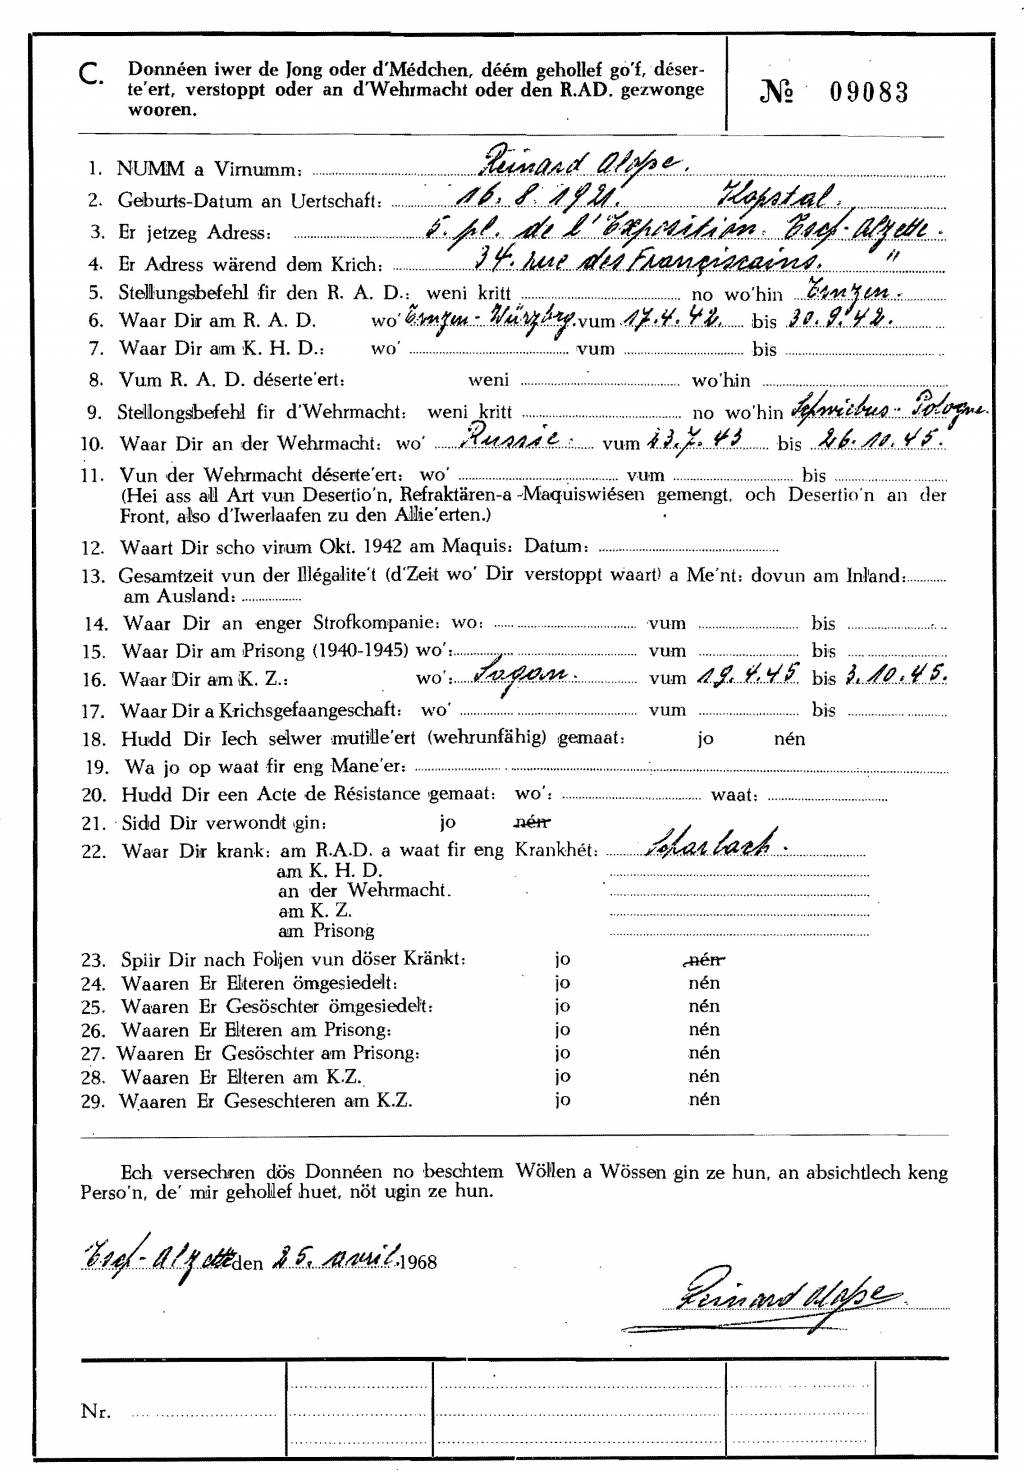 C. Donnéen iwer de Jong oder d'Médchen, déém gehollef go'f, déser-
te'ert, verstoppt oder an d'Wehrmacht oder den R.AD. gezwonge
wooren.
№ 09083
1. NUMM a Virnumm: Reinard Aloyse.
2. Geburts-Datum an Uertschaft: 16. 8. 1921. Kopstal.
3. Er jetzeg Adress: 5. pl. de l'Exposition. Esch-Alzette.
4. Er Adress wärend dem Krich: 34. rue des Franciscains. "
5. Stellungsbefehl fir den R. A. D.: weni kritt no wo'hin
6. Waar Dir am R. A. D. wo' vum 17.4.42. bis 30.9.42.
7. Waar Dir am K. H. D.: wo' vum bis
8. Vum R. A. D. déserte'ert: weni wo'hin
9. Stellongsbefehl fir d'Wehrmacht: weni kritt no wo'hin Schwiebus - Pologne.
10. Waar Dir an der Wehrmacht: wo' Russie. vum 13.7.43 bis 26.10.45.
11. Vun der Wehrmacht déserte'ert: wo' vum bis
(Hei ass all Art vun Desertio'n, Refraktären-a -Maquiswiésen gemengt, och Desertio'n an der
Front, also d'Iwerlaafen zu den Allie'erten.)
12. Waart Dir scho virum Okt. 1942 am Maquis: Datum:
13. Gesamtzeit vun der Illégalite't (d'Zeit wo' Dir verstoppt waart) a Me'nt: dovun am Inland:
am Ausland:
14. Waar Dir an enger Strofkompanie: wo: vum bis
15. Waar Dir am Prisong (1940-1945) wo': vum bis
16. Waar Dir am K. Z.: wo': Sagan. vum 19.4.45 bis 3.10.45.
17. Waar Dir a Krichsgefaangeschaft: wo' vum bis
18. Hudd Dir Iech selwer mutille'ert (wehrunfähig) gemaat: jo nén
19. Wa jo op waat fir eng Mane'er:
20. Hudd Dir een Acte de Résistance gemaat: wo': waat:
21. Sidd Dir verwondt gin: jo nén
22. Waar Dir krank: am R.A.D. a waat fir eng Krankhét: Scharlach.
am K. H. D.
an der Wehrmacht.
am K. Z.
am Prisong
23. Spiir Dir nach Foljen vun döser Kränkt: jo nén
24. Waaren Er Elteren ömgesiedelt: jo nén
25. Waaren Er Gesöschter ömgesiedelt: jo nén
26. Waaren Er Elteren am Prisong: jo nén
27. Waaren Er Gesöschter am Prisong: jo nén
28. Waaren Er Elteren am K.Z. jo nén
29. Waaren Er Geseschteren am K.Z. jo nén
Ech versechren dös Donnéen no beschtem Wöllen a Wössen gin ze hun, an absichtlech keng
Perso'n, de' mir gehollef huet, nöt ugin ze hun.
Esch-Alzette den 25. avril. 1968
Reinard Aloyse.
Nr.